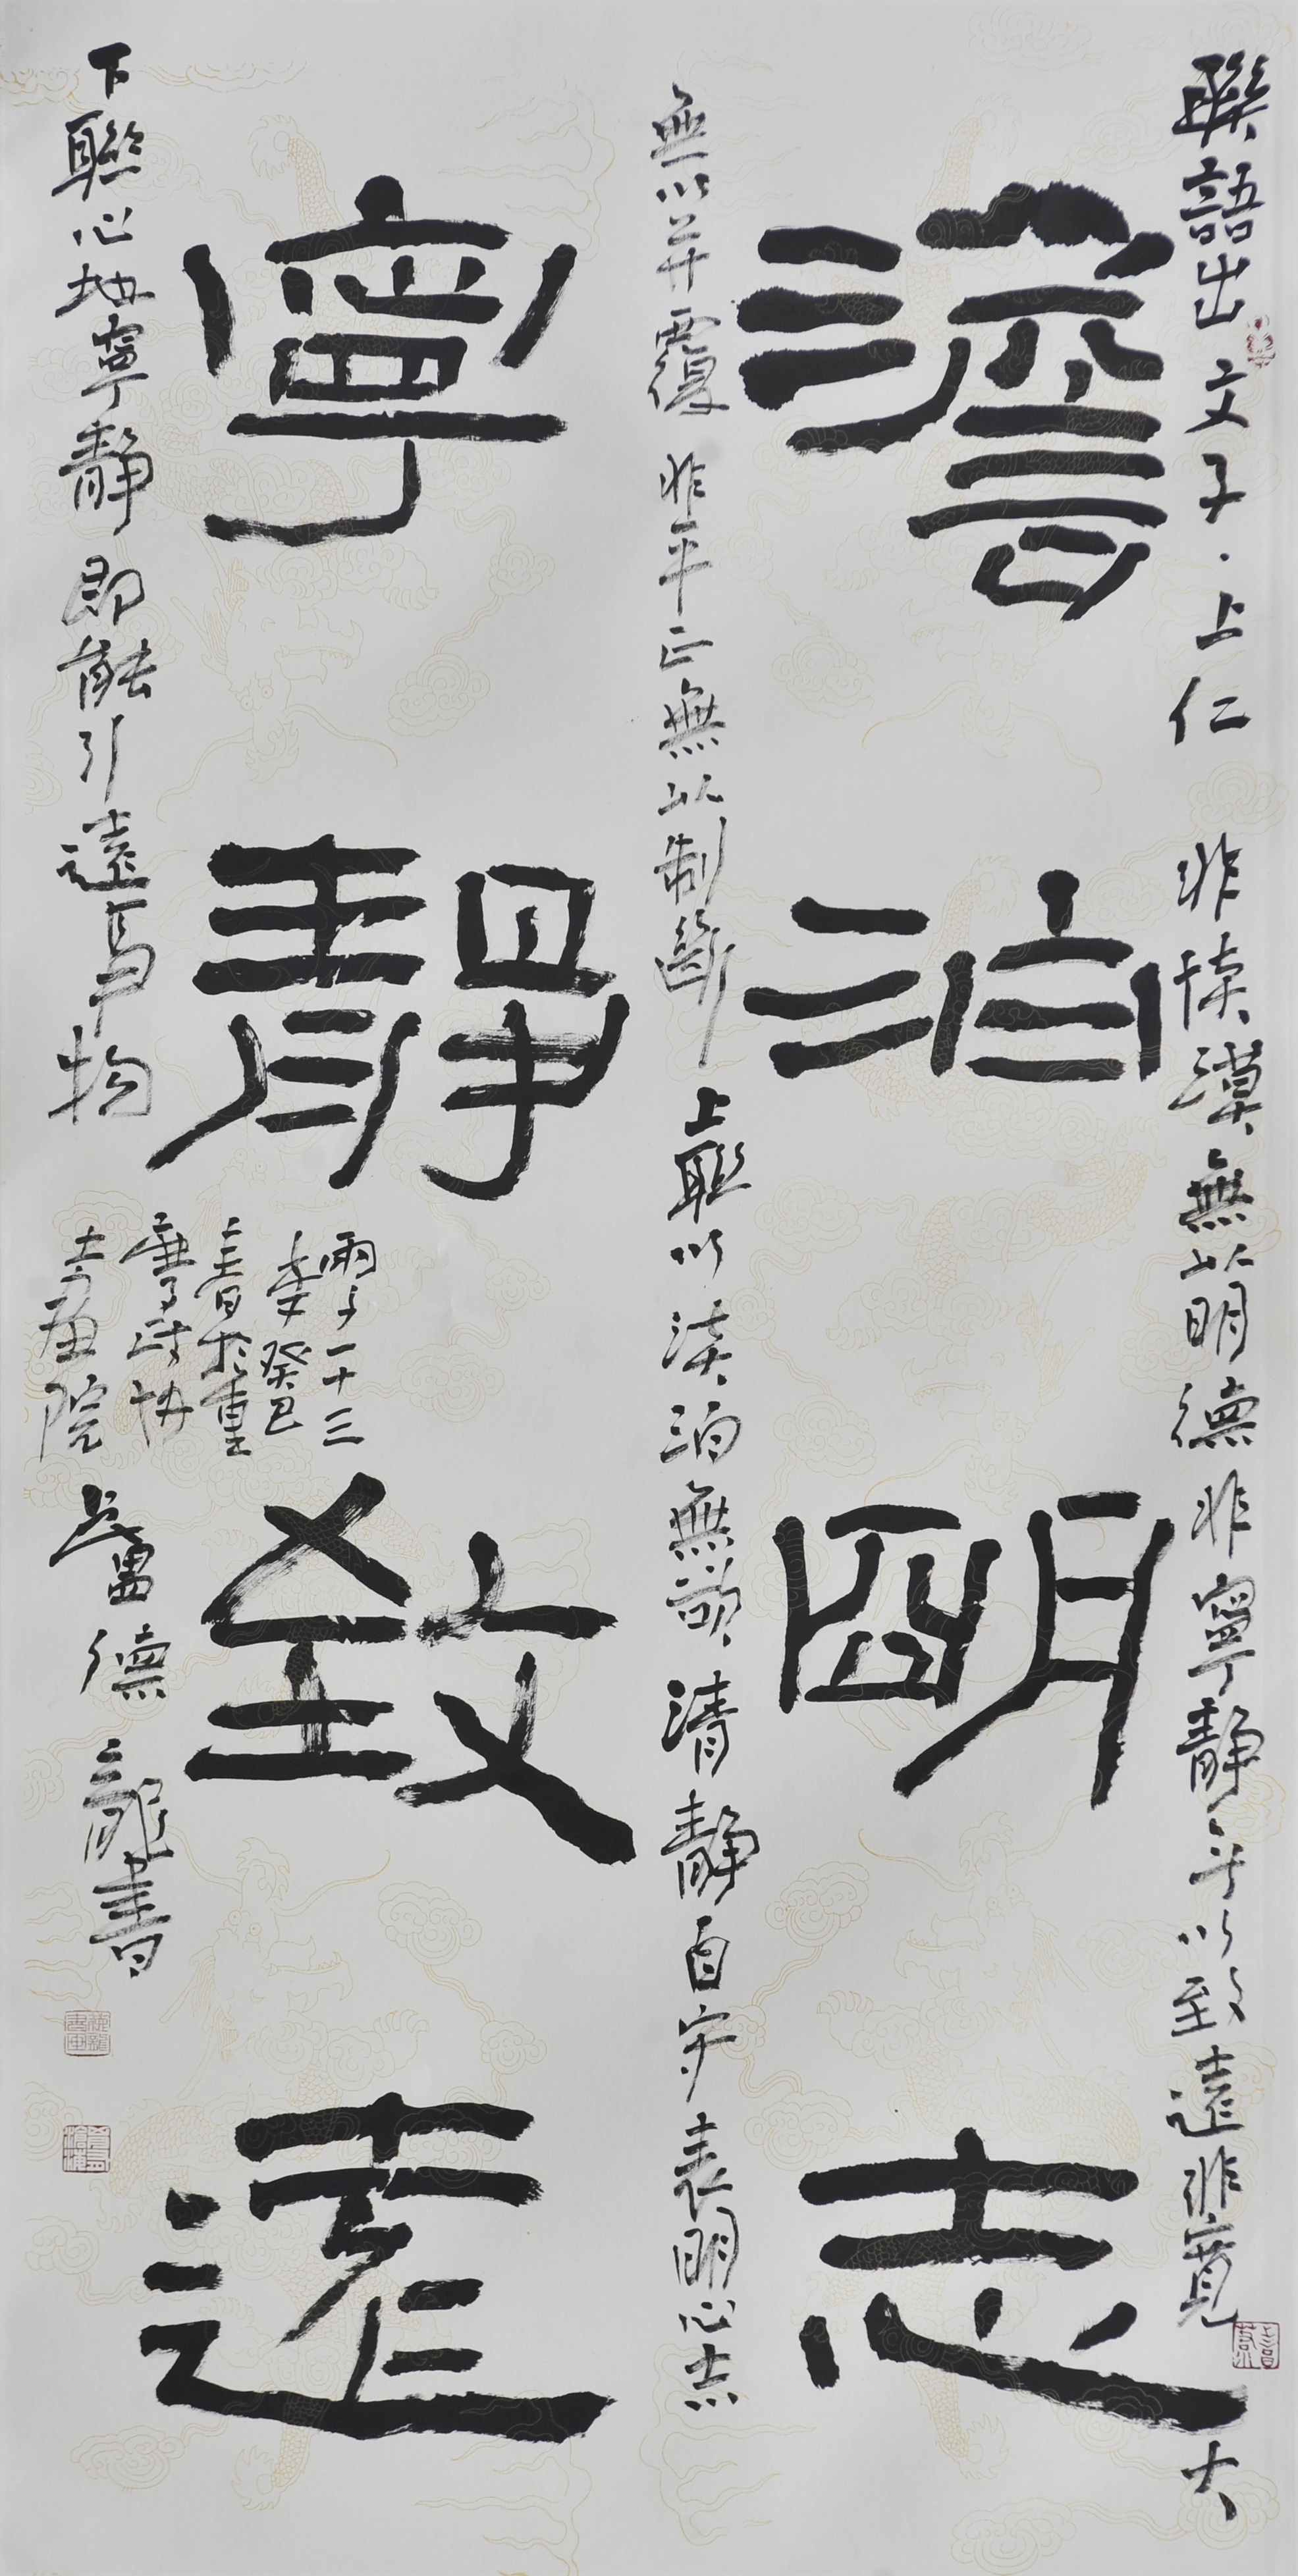 聯語出文子·上仁非惔漠無以明德非寧靜無以致遠非寬大
澹泊明志
無以并覆非平正無以制斷上聯以淡泊無欲清靜自守表明心志
寧靜致遠
下聯心地寧靜即能引遠事物
兩千一十三
年癸巳
春於重
慶詩协
書畫院
德龍書